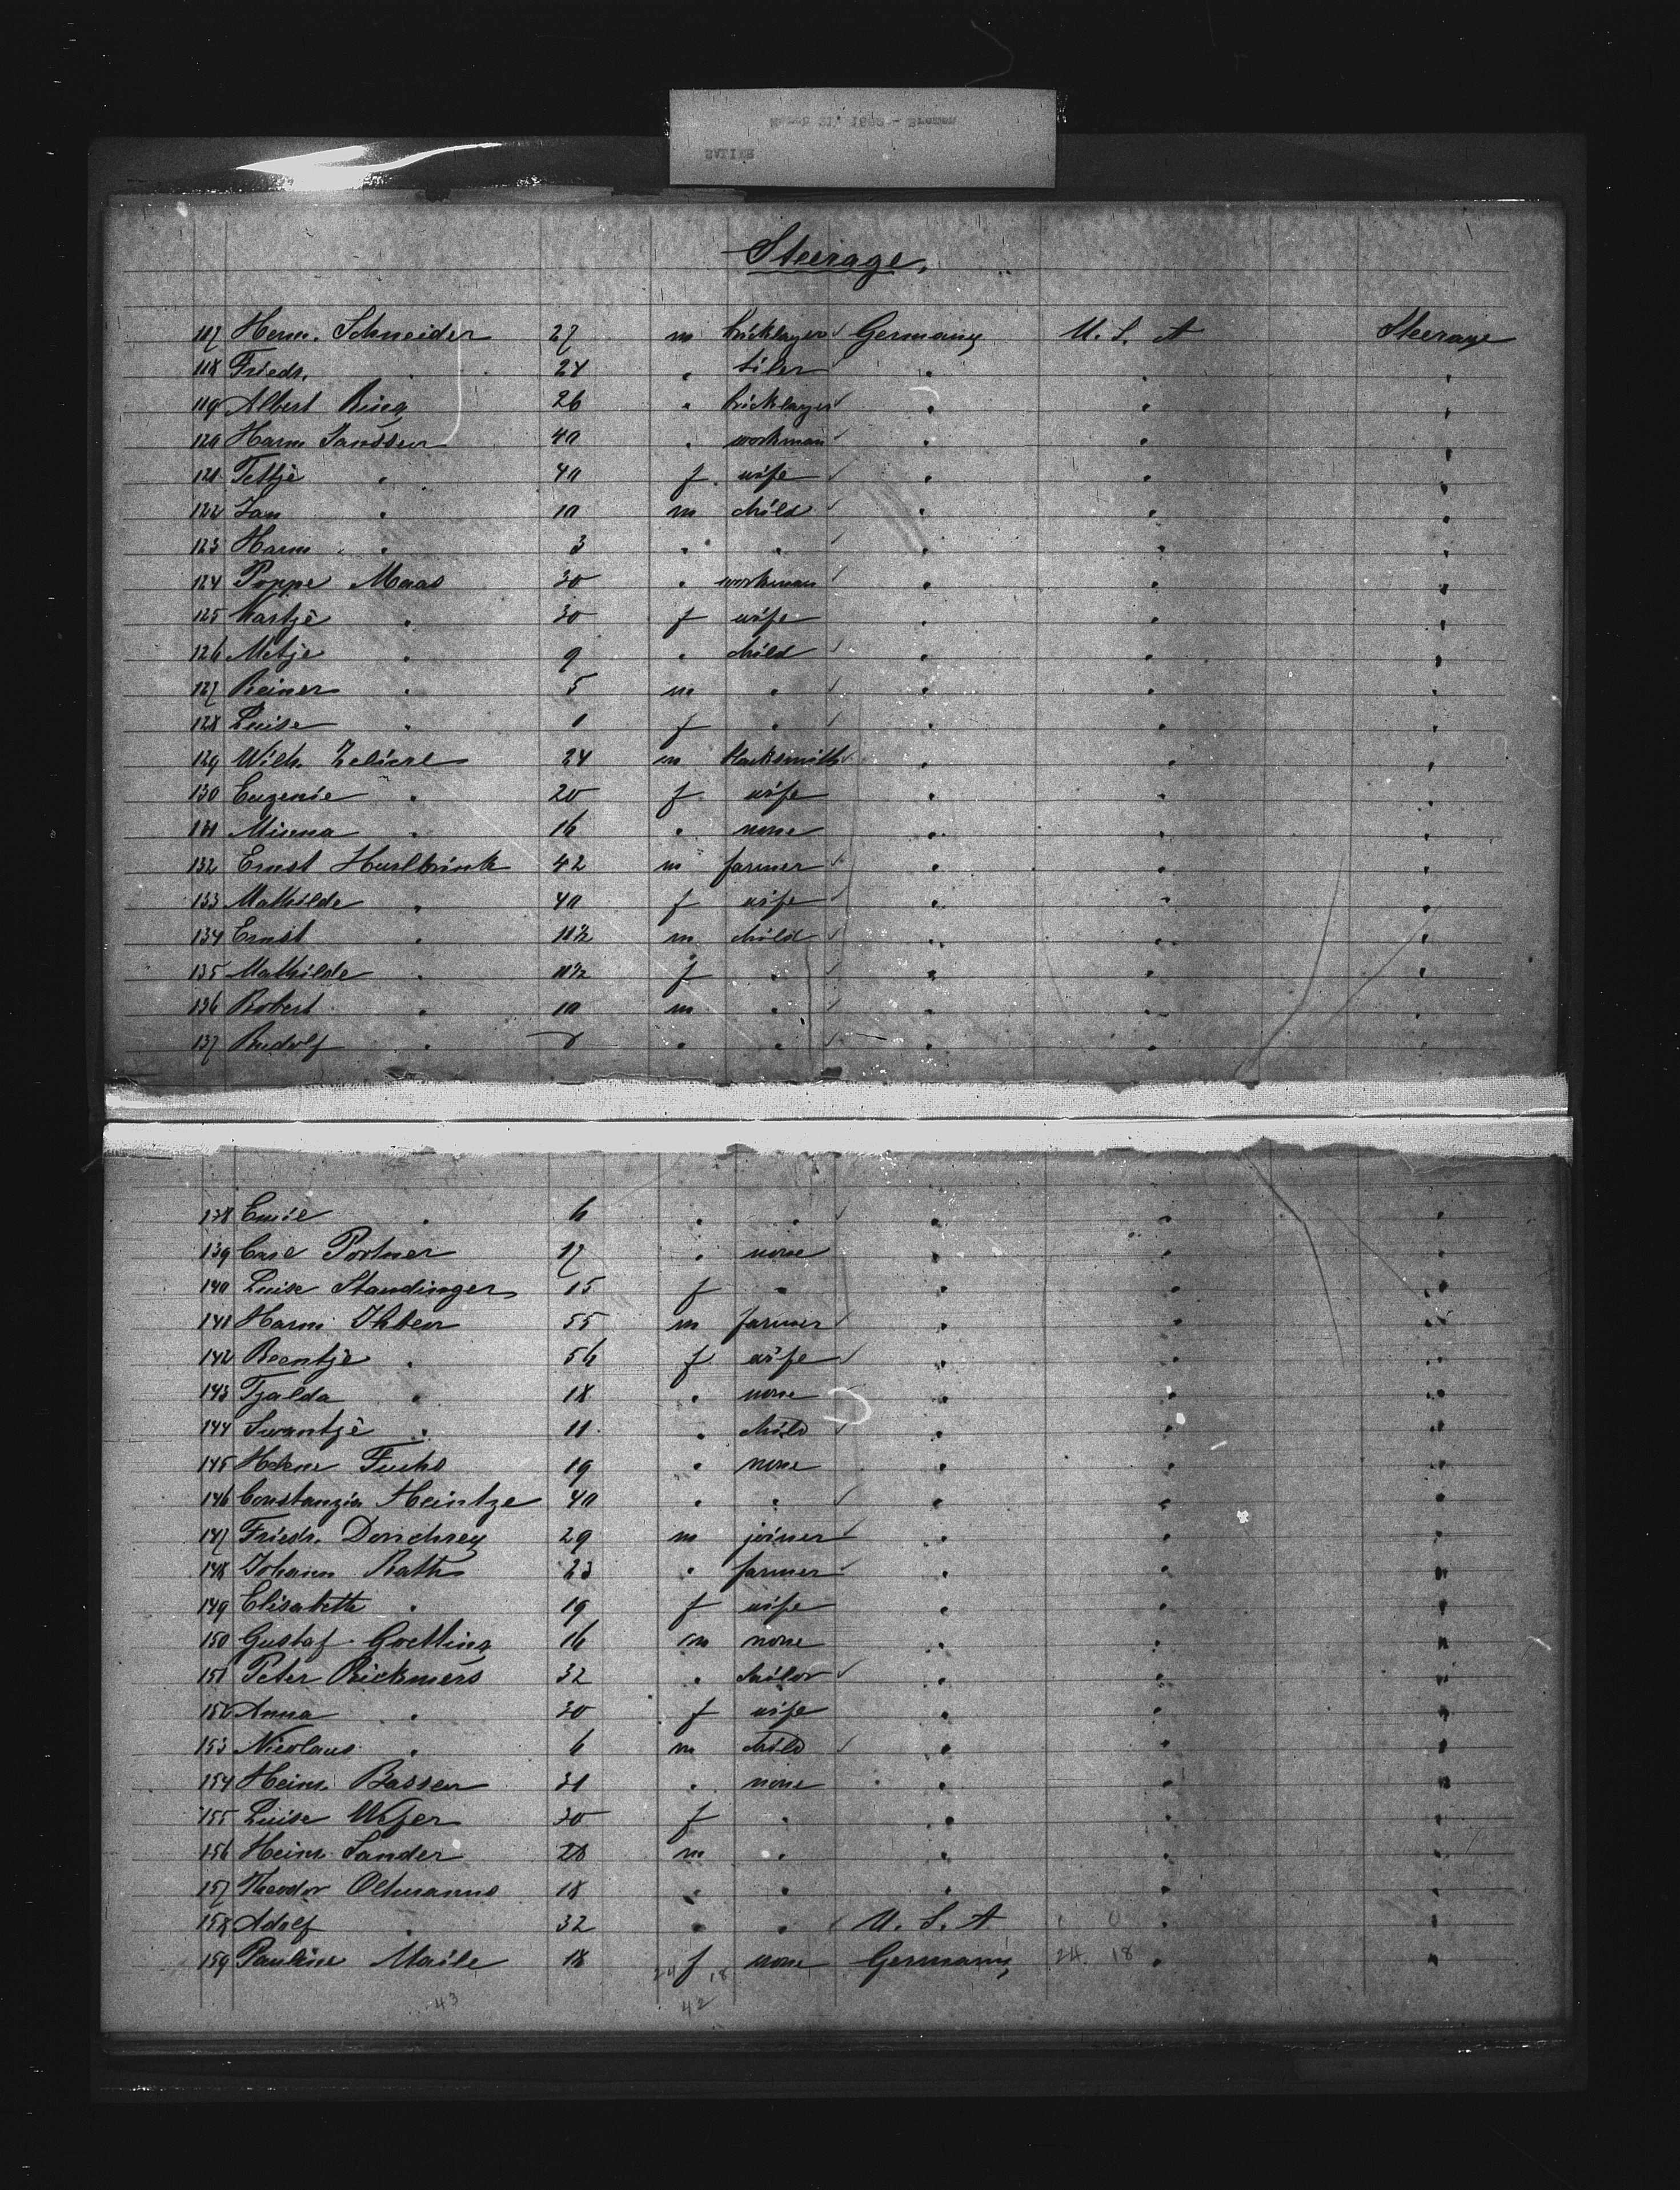 Steerage.
117 Herm. Schneider 27 m bricklayer ✓ Germany U. S. A Steerage
118 Friedr. " 24 " tiler ✓ " " "
119 Albert Ring 26 " bricklayer ✓ " " "
120 Harm Janssen 40 " workman ✓ " " "
121 Tettje " 40 f wife ✓ " " "
122 Jan " 10 m child ✓ " " "
123 Harm " 3 " " ✓ " " "
124 Poppe Maas 30 " workman ✓ " " "
125 " 30 f wife " " "
126 Metje " 9 " child ✓ " " "
127 Reiner " 5 m " ✓ " " "
128 Luise " 1 f " ✓ " " "
129 Wilh. 24 m blacksmith ✓ " " "
130 Eugenie " 20 f wife " " "
131 " 16 " none " " "
132 Ernst 42 m farmer ✓ " " "
133 Mathilde " 40 f wife ✓ " " "
134 Ernst " 11½ m child ✓ " " "
135 Mathilde " f " ✓ " " "
136 Robert " 10 m " ✓ " " "
137 Rudolf " 8 " " ✓ " " "
138 Emil " 6 " " ✓ " " "
139 Carl Portner 17 " none " " "
140 Luise Staudinger 15 f " " " "
141 Harm Ihben 55 m farmer ✓ " " "
142 Reentje " 56 f wife ✓ " " "
143 Tjalda " 18 " none " " "
144 Swantje " 11 " child ✓ " " "
145 Helene Fuchs 19 " none " " "
146 Constanzia Heintze 40 " " ✓ " " "
147 Friedr. Donchrey 29 m joiner ✓ " " "
148 Johann Rath 23 " farmer ✓ " " "
149 Elisabeth " 19 f wife " " "
150 Gustaf Goetting 16 m none " " "
151 Peter Rickmers 32 " ✓ " " "
152 Anna " 30 f wife " " "
153 Nicolaus " 6 m child ✓ " " "
154 Heinr. Bassen 31 " none " " "
155 Luise 30 f " " " "
156 Heinr. Sander 28 m " " " "
157 Theodor Oltmanns 18 " " " " "
158 Adolf " 32 " " U. S. A " "
159 Pauline Maile 18 f none Germany 24 18 " "
24 18
43 42